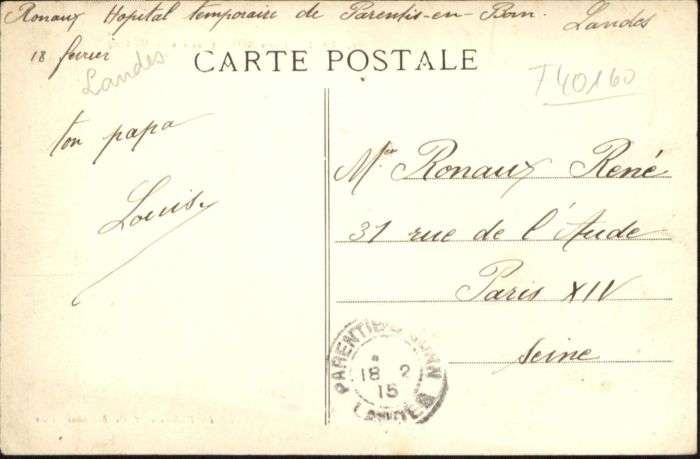 Ronaux Hopital temporaire de Parentis-en-Born. Landes
18 février
Landes
CARTE POSTALE
T40160
ton papa
Louis
Mr Ronaux René
31 rue de l'Aude
Paris XIV
Seine
PARENTIS-EN-BORN
18 2
15
LANDES